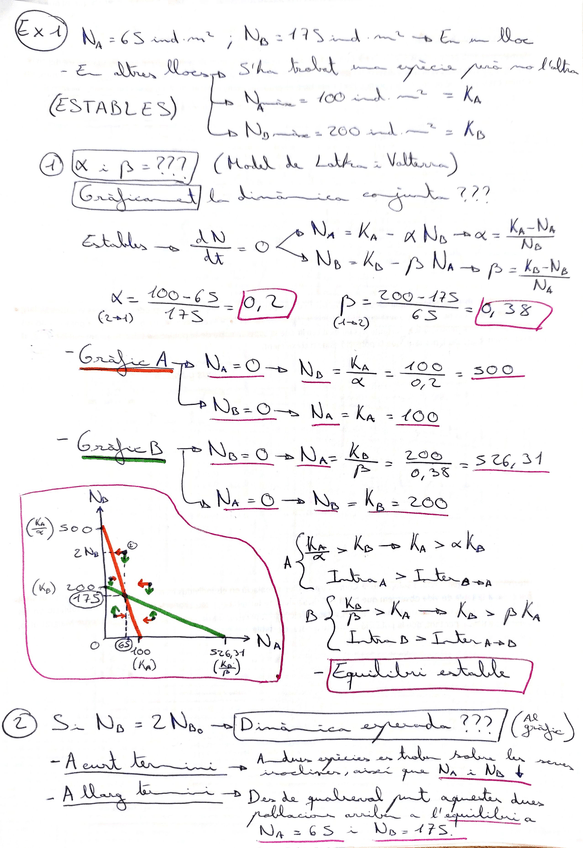 Ex 1 N_A = 65 ind·m² ; N_B = 175 ind·m² → En un lloc
- En altres llocs → S'ha trobat una espècie però no l'altra
(ESTABLES) → N_A màx = 100 ind·m² = K_A
→ N_B màx = 200 ind·m² = K_B
① α i β = ??? (Model de Lotka i Valterra)
Gràficament la dinàmica conjunta ???
Estables → dN/dt = 0 → N_A = K_A - α N_B → α = (K_A - N_A)/N_B
→ N_B = K_B - β N_A → β = (K_B - N_B)/N_A
α (2→1) = (100 - 65)/175 = 0,2 β (1→2) = (200 - 175)/65 = 0,38
- Gràfic A → N_A = 0 → N_B = K_A/α = 100/0,2 = 500
→ N_B = 0 → N_A = K_A = 100
- Gràfic B → N_B = 0 → N_A = K_B/β = 200/0,38 = 526,31
→ N_A = 0 → N_B = K_B = 200
N_B
(K_A/α) 500
2N_B ②
(K_B) 200
175
0 65 100 526,31 N_A
(K_A) (K_B/β)
A { K_A/α > K_B → K_A > αK_B
Intra A > Inter B→A
B { K_B/β > K_A → K_B > βK_A
Intra B > Inter A→B
- Equilibri estable
② Si N_B = 2N_B₀ → Dinàmica esperada ??? (Al gràfic)
- A curt termini → Ambdues espècies es troben sobre les seves
isoclines, així que N_A i N_B ↓
- A llarg termini → Des de qualsevol punt aquestes dues
poblacions arriben a l'equilibri a
N_A = 65 i N_B = 175.